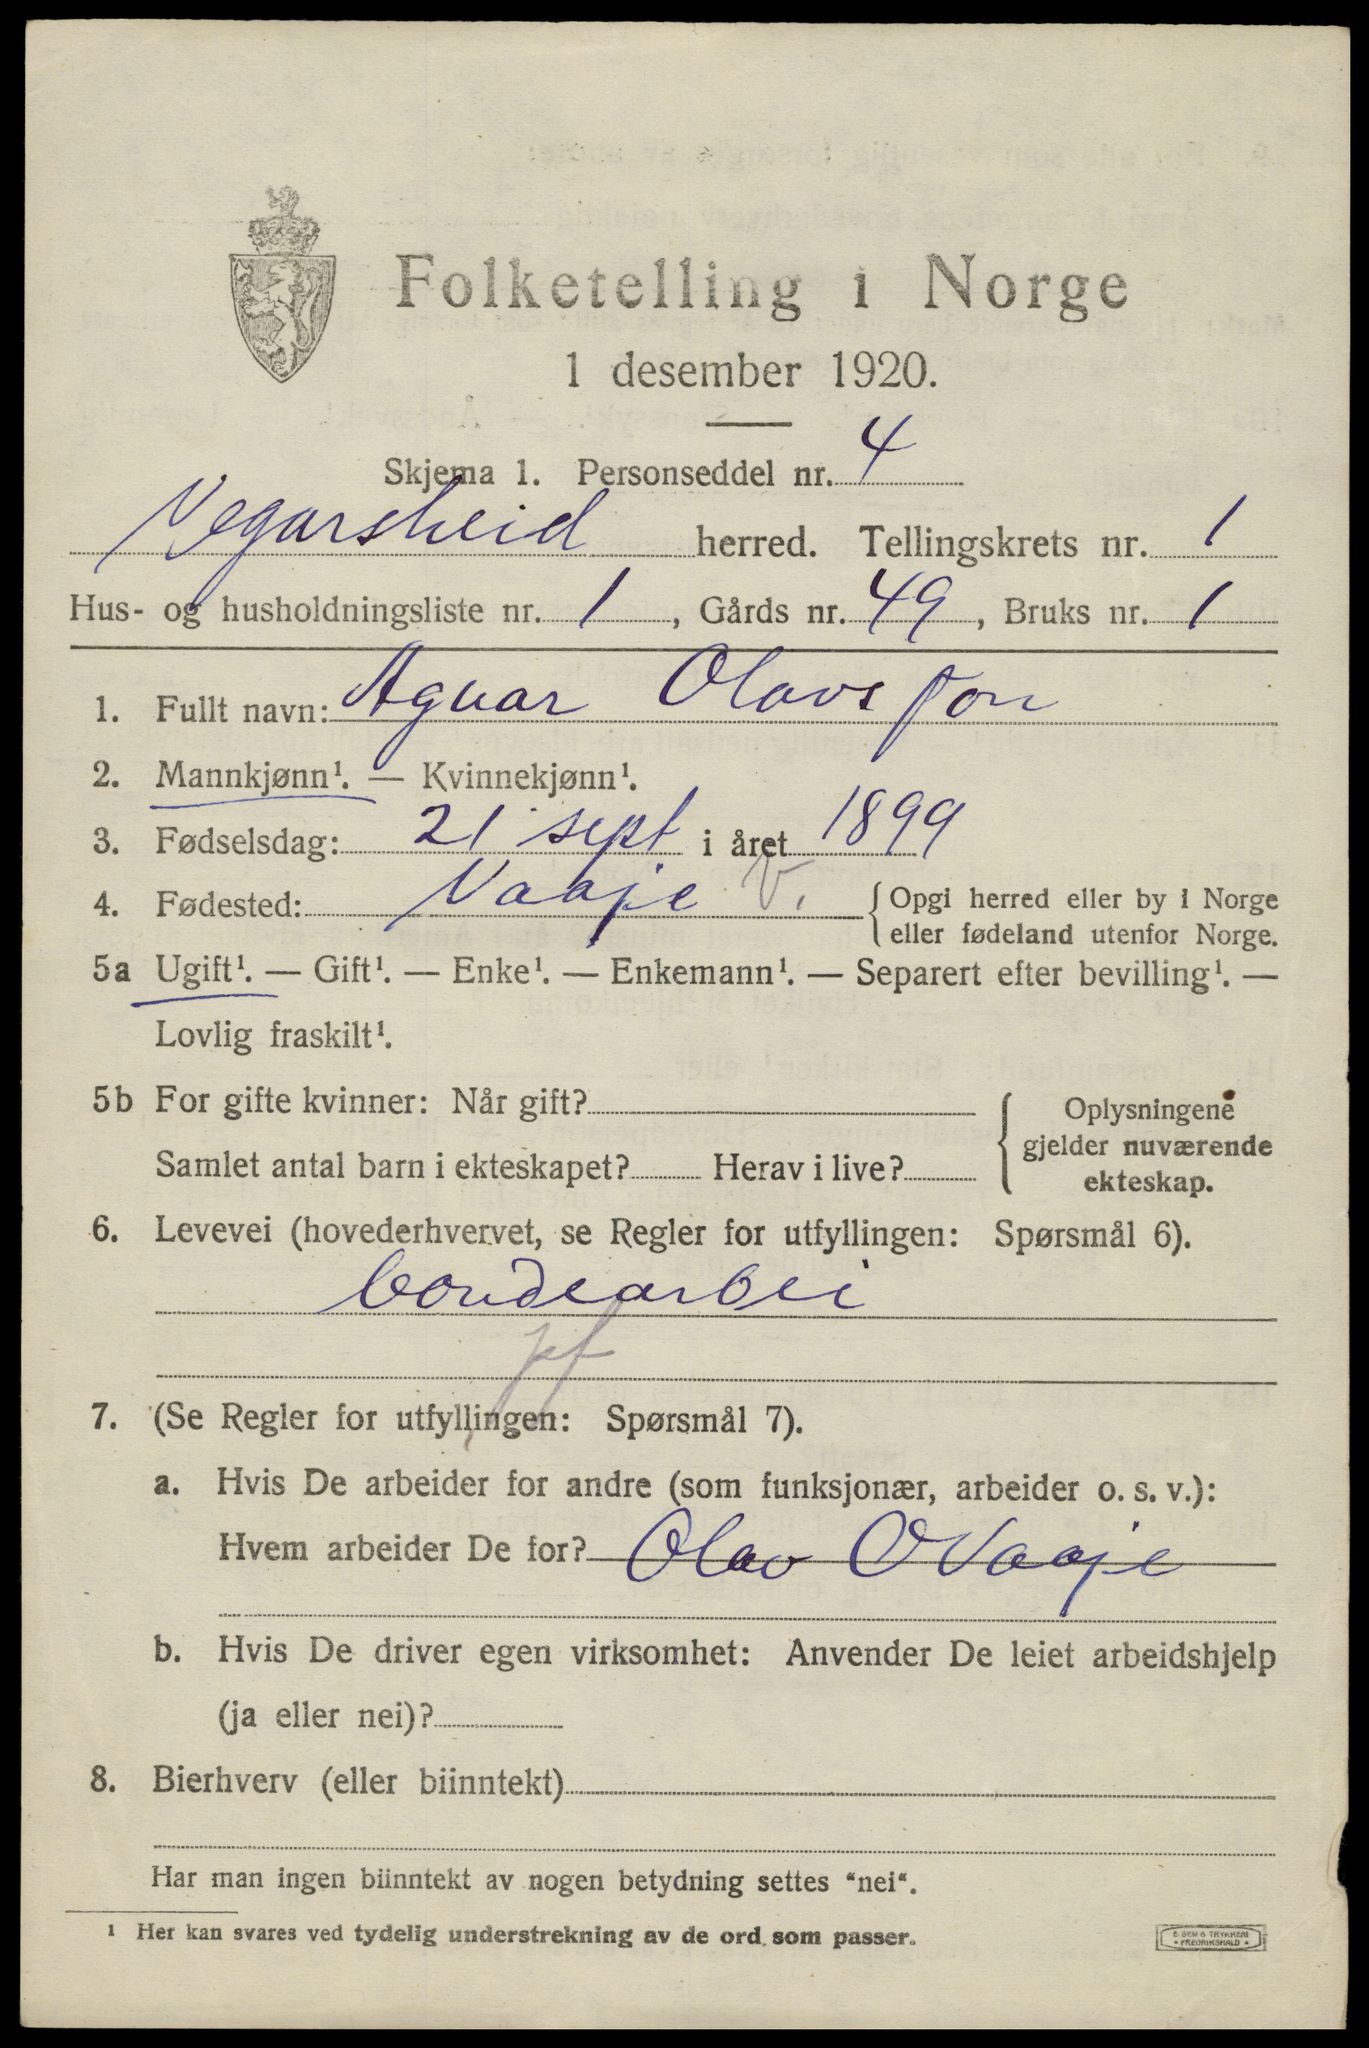 Folketelling i Norge
1 desember 1920.
Skjema 1. Personseddel nr. 4
Vegarsheid herred. Tellingskrets nr. 1
Hus- og husholdningsliste nr. 1, Gårds nr. 49, Bruks nr. 1
1. Fullt navn: Agnar Olavs son
2. Mannkjønn¹. — Kvinnekjønn¹.
3. Fødselsdag: 21 sept i året 1899
4. Fødested: Vaaje V. { Opgi herred eller by i Norge
eller fødeland utenfor Norge.
5a Ugift¹. — Gift¹. — Enke¹. — Enkemann¹. — Separert efter bevilling¹. —
Lovlig fraskilt¹.
5b For gifte kvinner: Når gift?
Samlet antal barn i ekteskapet? Herav i live?
{ Oplysningene
gjelder nuværende
ekteskap.
6. Levevei (hovederhvervet, se Regler for utfyllingen: Spørsmål 6).
bondearbei
pf
7. (Se Regler for utfyllingen: Spørsmål 7).
a. Hvis De arbeider for andre (som funksjonær, arbeider o. s. v.):
Hvem arbeider De for? Olav O Vaaje
b. Hvis De driver egen virksomhet: Anvender De leiet arbeidshjelp
(ja eller nei)?
8. Bierhverv (eller biinntekt)
Har man ingen biinntekt av nogen betydning settes "nei".
¹ Her kan svares ved tydelig understrekning av de ord som passer.
E. SEM'S TRYKKERI
• FREDRIKSHALD •